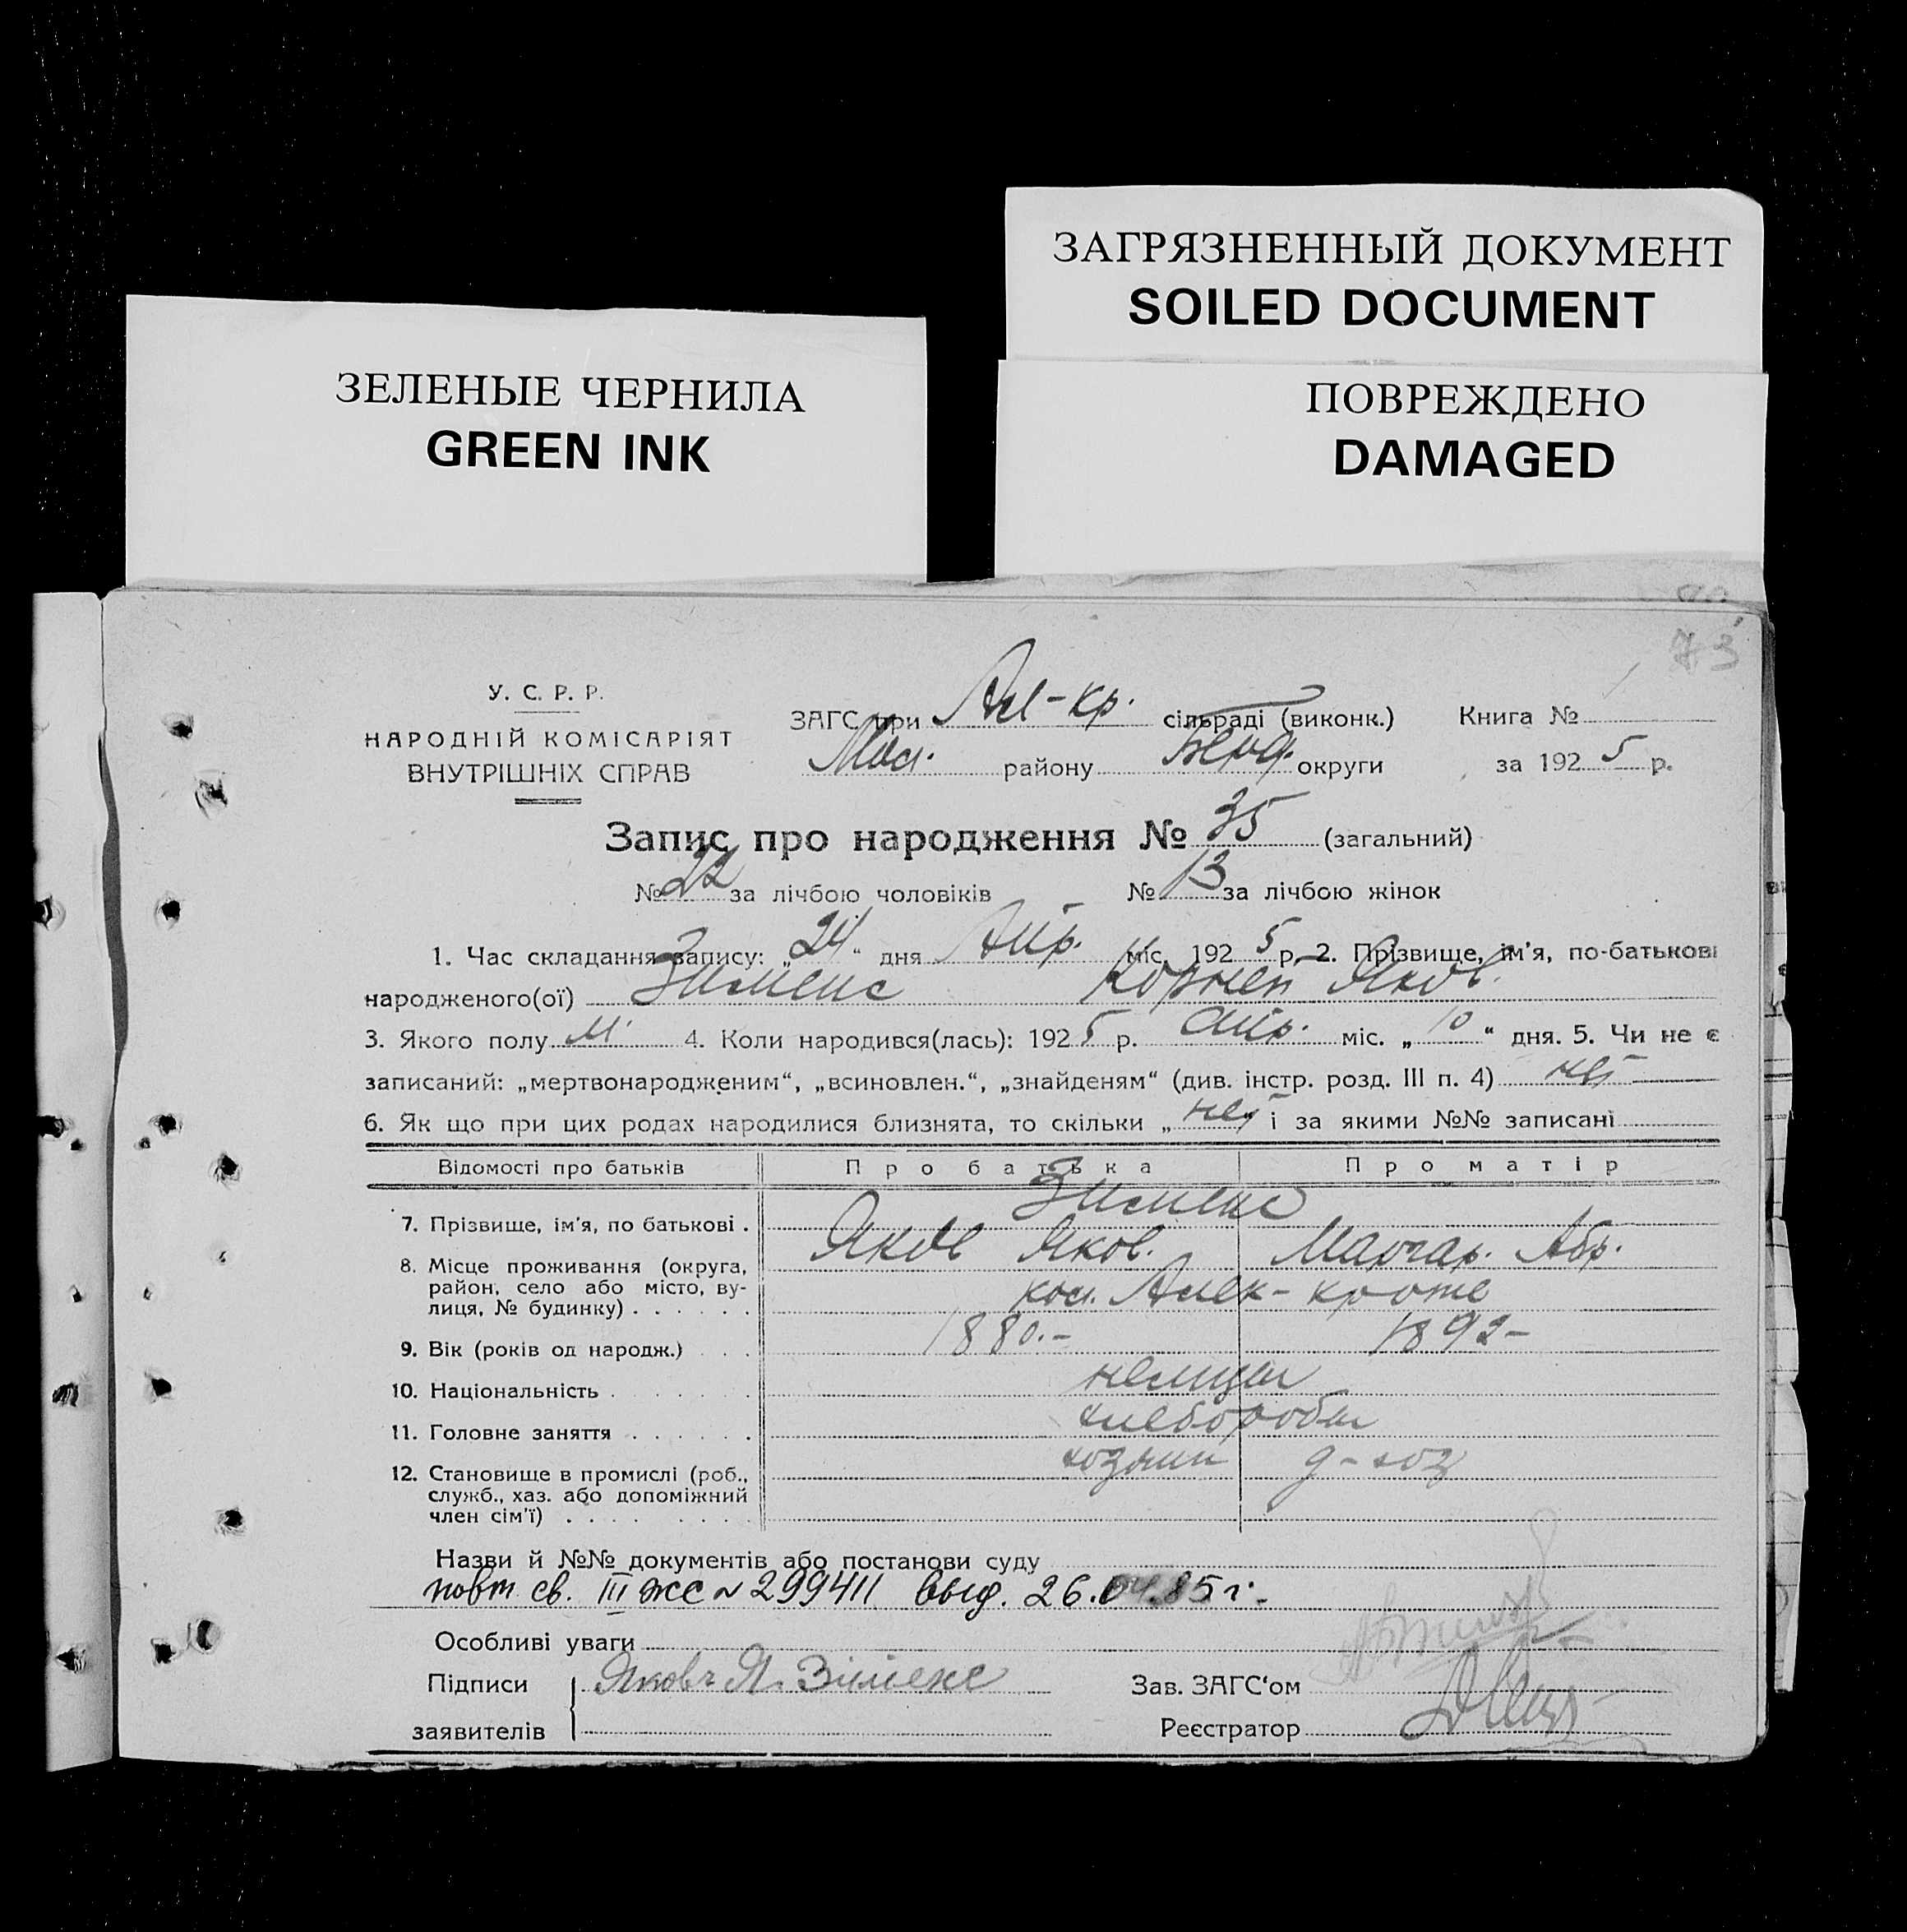 ЗАГРЯЗНЕННЫЙ ДОКУМЕНТ
SOILED DOCUMENT
ЗЕЛЕНЫЕ ЧЕРНИЛА
GREEN INK
ПОВРЕЖДЕНО
DAMAGED
73
У. С. Р. Р.
НАРОДНІЙ КОМІСАРІЯТ
ВНУТРІШНІХ СПРАВ
ЗАГС при Ал-кр. сільраді (виконк.) Книга №
Мол. району Берд. округи за 1925 р.
Запис про народження № 35 (загальний)
№ 22 за лічбою чоловіків № 13 за лічбою жінок
1. Час складання запису: „24“ дня Апр. міс. 1925 р. 2. Прізвище, ім'я, по-батькові
народженого(ої) Зименс Корней Яков.
3. Якого полу м. 4. Коли народився(лась): 1925 р. апр. міс. „10“ дня. 5. Чи не є
записаний: „мертвонародженим“, „всиновлен.“, „знайденям“ (див. інстр. розд. III п. 4) нет
6. Як що при цих родах народилися близнята, то скільки „нет і за якими №№ записані
Відомості про батьків Про батька Про матір
7. Прізвище, ім'я, по батькові . Зименс
Яков Яков. Маргар. Абр.
8. Місце проживання (округа, район, село або місто, ву-
лиця, № будинку) . . . . . . кол. Алек-кроне
9. Вік (років од народж.) . . . 1880.- 1892-
10. Національність . . . . . немцы
11. Головне заняття . . . . . . хлеборобы
12. Становище в промислі (роб., хозяин д-хоз
служб., хаз. або допоміжний
член сім'ї) . . . . . . . .
Назви й №№ документів або постанови суду
повт. св. III жс № 299411 выд. 26.04.85 г.
Особливі уваги
Підписи Яковъ Я. Зименс Зав. ЗАГС'ом
заявителів Реєстратор